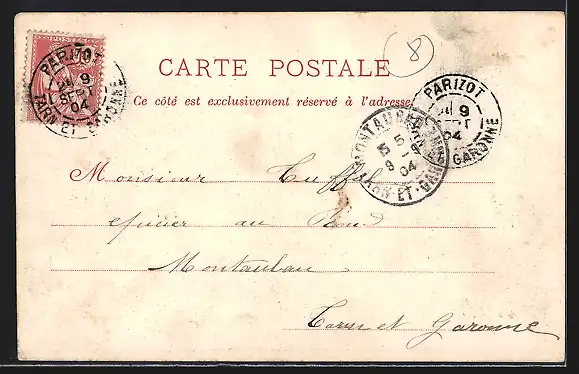 POSTES
PARIZOT
9
SEPT
04
TARN ET GARONNE
8
CARTE POSTALE
Ce côté est exclusivement réservé à l'adresse.
PARIZOT
9
SEPT
04
GARONNE
MONTAUBAN
5
9
04
TARN ET GARONNE
Monsieur
épicier au
Montauban
Tarn et Garonne